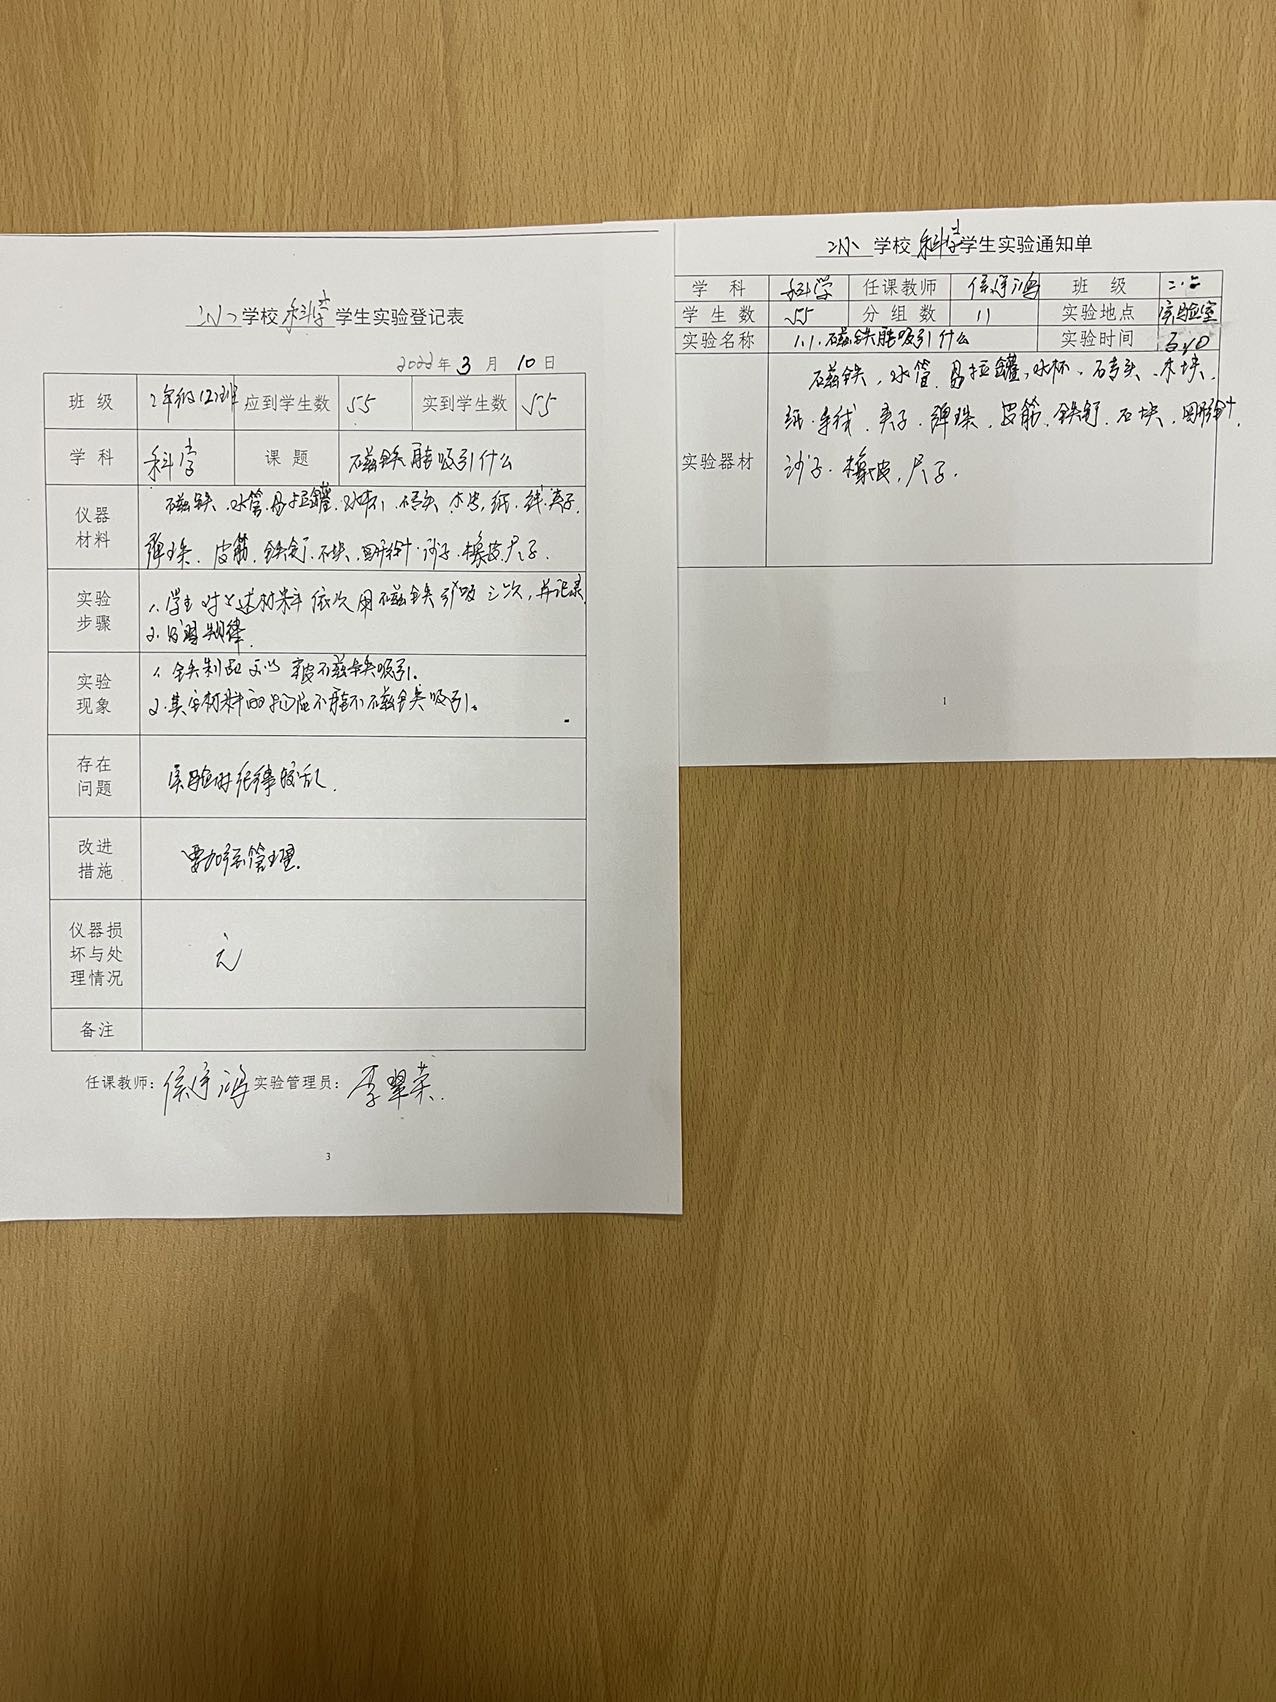 学校 科学 学生实验登记表
2022年 3 月 10 日
班 级 2年级(2)班 应到学生数 55 实到学生数 55
学 科 科学 课 题 磁铁能吸引什么
仪器材料 磁铁、水管、易拉罐、水杯、砖头、木块、纸、线、夹子、
弹珠、皮筋、铁钉、石块、回形针、沙子、橡皮、尺子.
实验步骤 1. 学生对上述材料依次用磁铁引吸三次,并记录.
2. 规律.
实验现象 1. 铁制品可以被磁铁吸引.
2. 其它材料的物品不能被磁铁吸引。
存在问题 实验时纪律较乱.
改进措施 要加强管理.
仪器损坏与处理情况 无
备注
任课教师: 侯 鸿 实验管理员: 李翠荣.
3
学校 科学 学生实验通知单
学 科 科学 任课教师 侯 鸿 班 级 二.
学 生 数 55 分 组 数 11 实验地点 实验室
实验名称 1.1.磁铁能吸引什么 实验时间
实验器材 磁铁、水管、易拉罐、水杯、砖头、木块、
纸、手线、夹子、弹珠、皮筋、铁钉、石块、回形针、
沙子、橡皮、尺子.
1